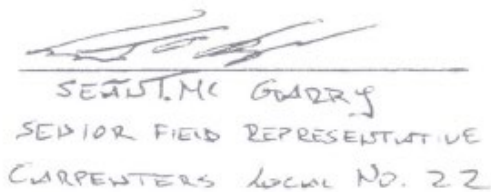 SEÁN T. MC GARRY
SENIOR FIELD REPRESENTATIVE
CARPENTERS LOCAL NO. 22